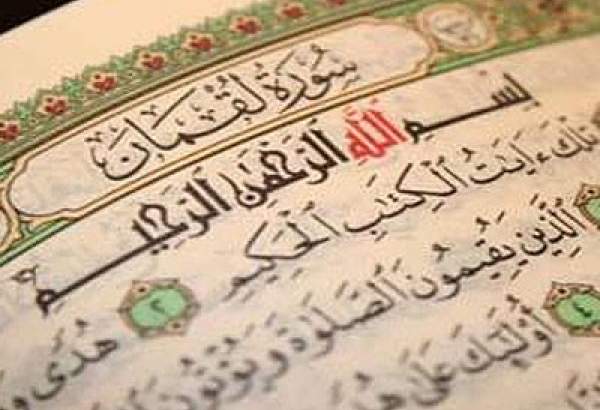 سُورَةُ لُقْمَان
بِسْمِ اللَّهِ الرَّحْمَنِ الرَّحِيمِ
تِلْكَ ءَايَتُ الْكِتَبِ الْحَكِيمِ ٢ هُدًى
الَّذِينَ يُقِيمُونَ الصَّلَوٰةَ وَيُؤْتُونَ
٤ أُوْلَئِكَ عَلَى هُدًى